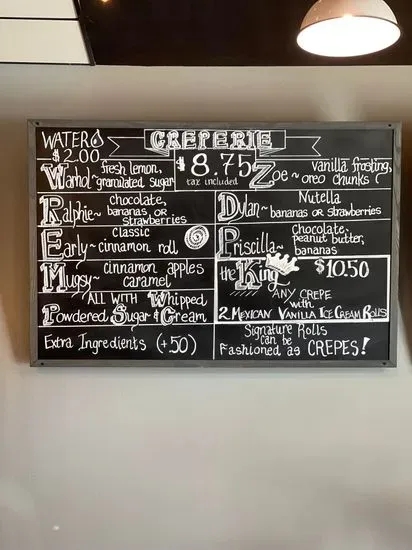 WATER
$2.00
CREPERIE
$8.75
tax included
Warhol~ fresh lemon,
granulated sugar
Zoe~ vanilla frosting,
oreo chunks
Ralphie~ chocolate,
bananas or
strawberries
Dylan~ Nutella
bananas or strawberries
Early~ Classic
cinnamon roll
Priscilla~ Chocolate,
peanut butter,
bananas
Mugsy~ cinnamon apples
caramel
the King $10.50
ANY CREPE
with
2 MEXICAN VANILLA ICE CREAM ROLLS
ALL WITH Whipped
Powdered Sugar & Cream
Extra Ingredients (+50)
Signature Rolls
can be
Fashioned as CREPES!